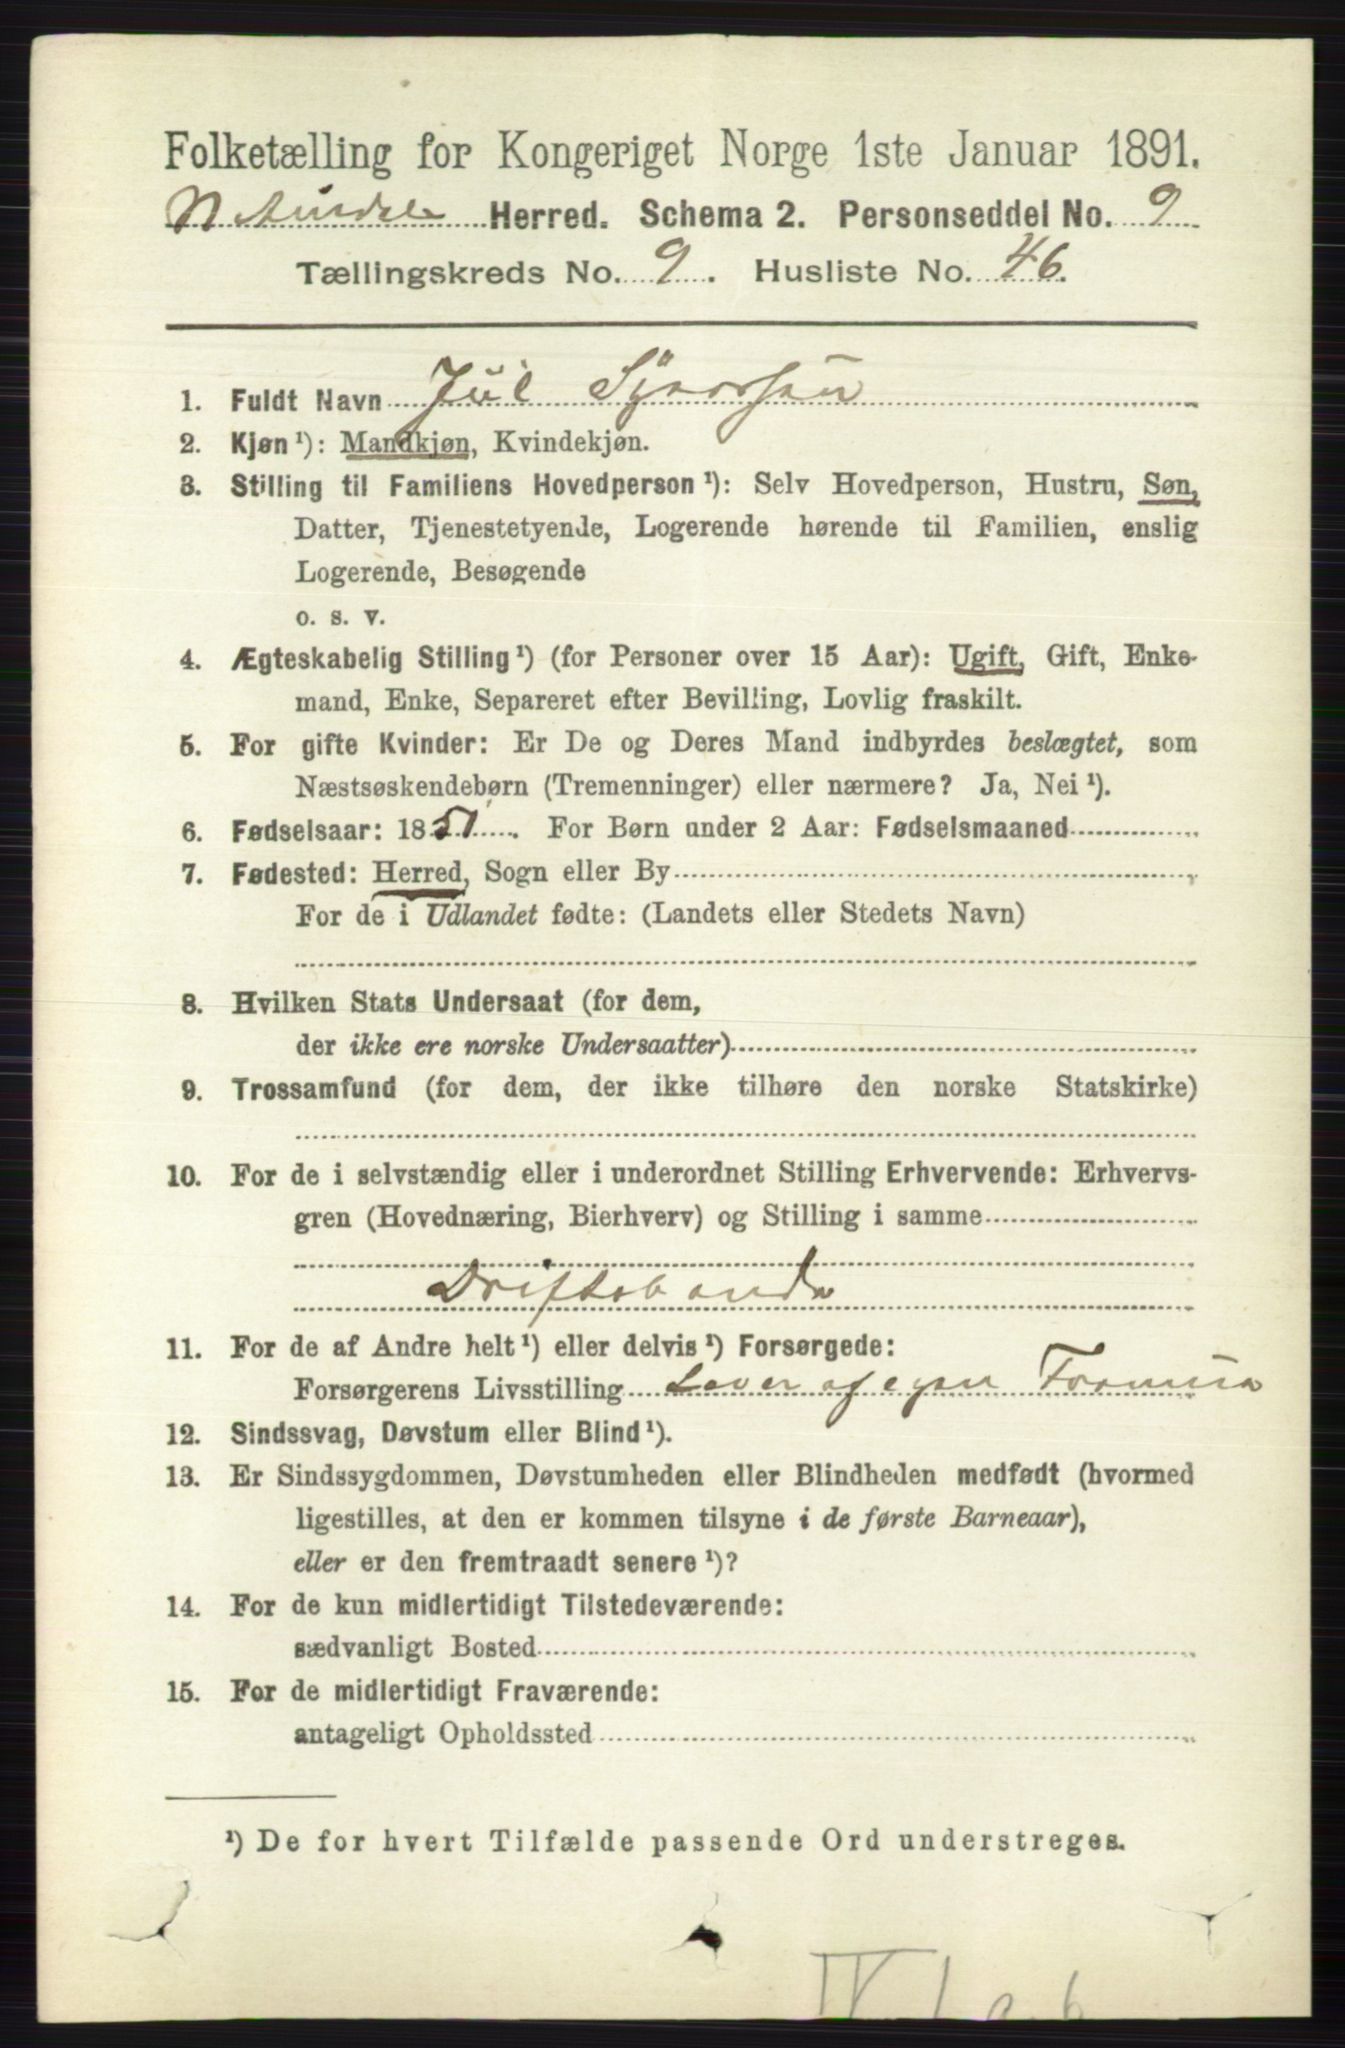 Folketælling for Kongeriget Norge 1ste Januar 1891.
N. Aurdal Herred. Schema 2. Personseddel No. 9
Tællingskreds No. 9. Husliste No. 46.
1. Fuldt Navn Jul Syversen
2. Kjøn ¹): Mandkjøn, Kvindekjøn.
3. Stilling til Familiens Hovedperson ¹): Selv Hovedperson, Hustru, Søn,
Datter, Tjenestetyende, Logerende hørende til Familien, enslig
Logerende, Besøgende
o. s. v.
4. Ægteskabelig Stilling ¹) (for Personer over 15 Aar): Ugift, Gift, Enke-
mand, Enke, Separeret efter Bevilling, Lovlig fraskilt.
5. For gifte Kvinder: Er De og Deres Mand indbyrdes beslægtet, som
Næstsøskendebørn (Tremenninger) eller nærmere? Ja, Nei ¹).
6. Fødselsaar: 1851. For Børn under 2 Aar: Fødselsmaaned
7. Fødested: Herred, Sogn eller By
For de i Udlandet fødte: (Landets eller Stedets Navn)
8. Hvilken Stats Undersaat (for dem,
der ikke ere norske Undersaatter)
9. Trossamfund (for dem, der ikke tilhøre den norske Statskirke)
10. For de i selvstændig eller i underordnet Stilling Erhvervende: Erhvervs-
gren (Hovednæring, Bierhverv) og Stilling i samme
Driftsbonde
11. For de af Andre helt ¹) eller delvis ¹) Forsørgede:
Forsørgerens Livsstilling Lever af egen Formue
12. Sindssvag, Døvstum eller Blind ¹).
13. Er Sindssygdommen, Døvstumheden eller Blindheden medfødt (hvormed
ligestilles, at den er kommen tilsyne i de første Barneaar),
eller er den fremtraadt senere ¹)?
14. For de kun midlertidigt Tilstedeværende:
sædvanligt Bosted
15. For de midlertidigt Fraværende:
antageligt Opholdssted
¹) De for hvert Tilfælde passende Ord understreges.